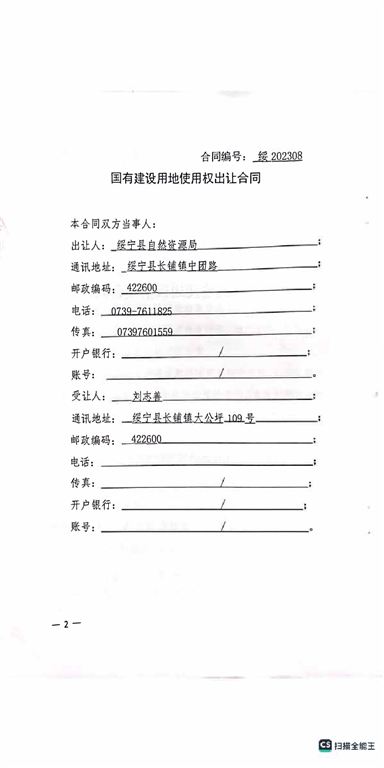 合同编号：绥 202308
国有建设用地使用权出让合同
本合同双方当事人：
出让人：绥宁县自然资源局；
通讯地址：绥宁县长铺镇中团路；
邮政编码：422600；
电话：0739-7611825；
传真：07397601559；
开户银行：/；
账号：/。
受让人：刘志善；
通讯地址：绥宁县长铺镇大公坪 109 号；
邮政编码：422600；
电话：；
传真：/；
开户银行：/；
账号：/。
— 2 —
CS 扫描全能王